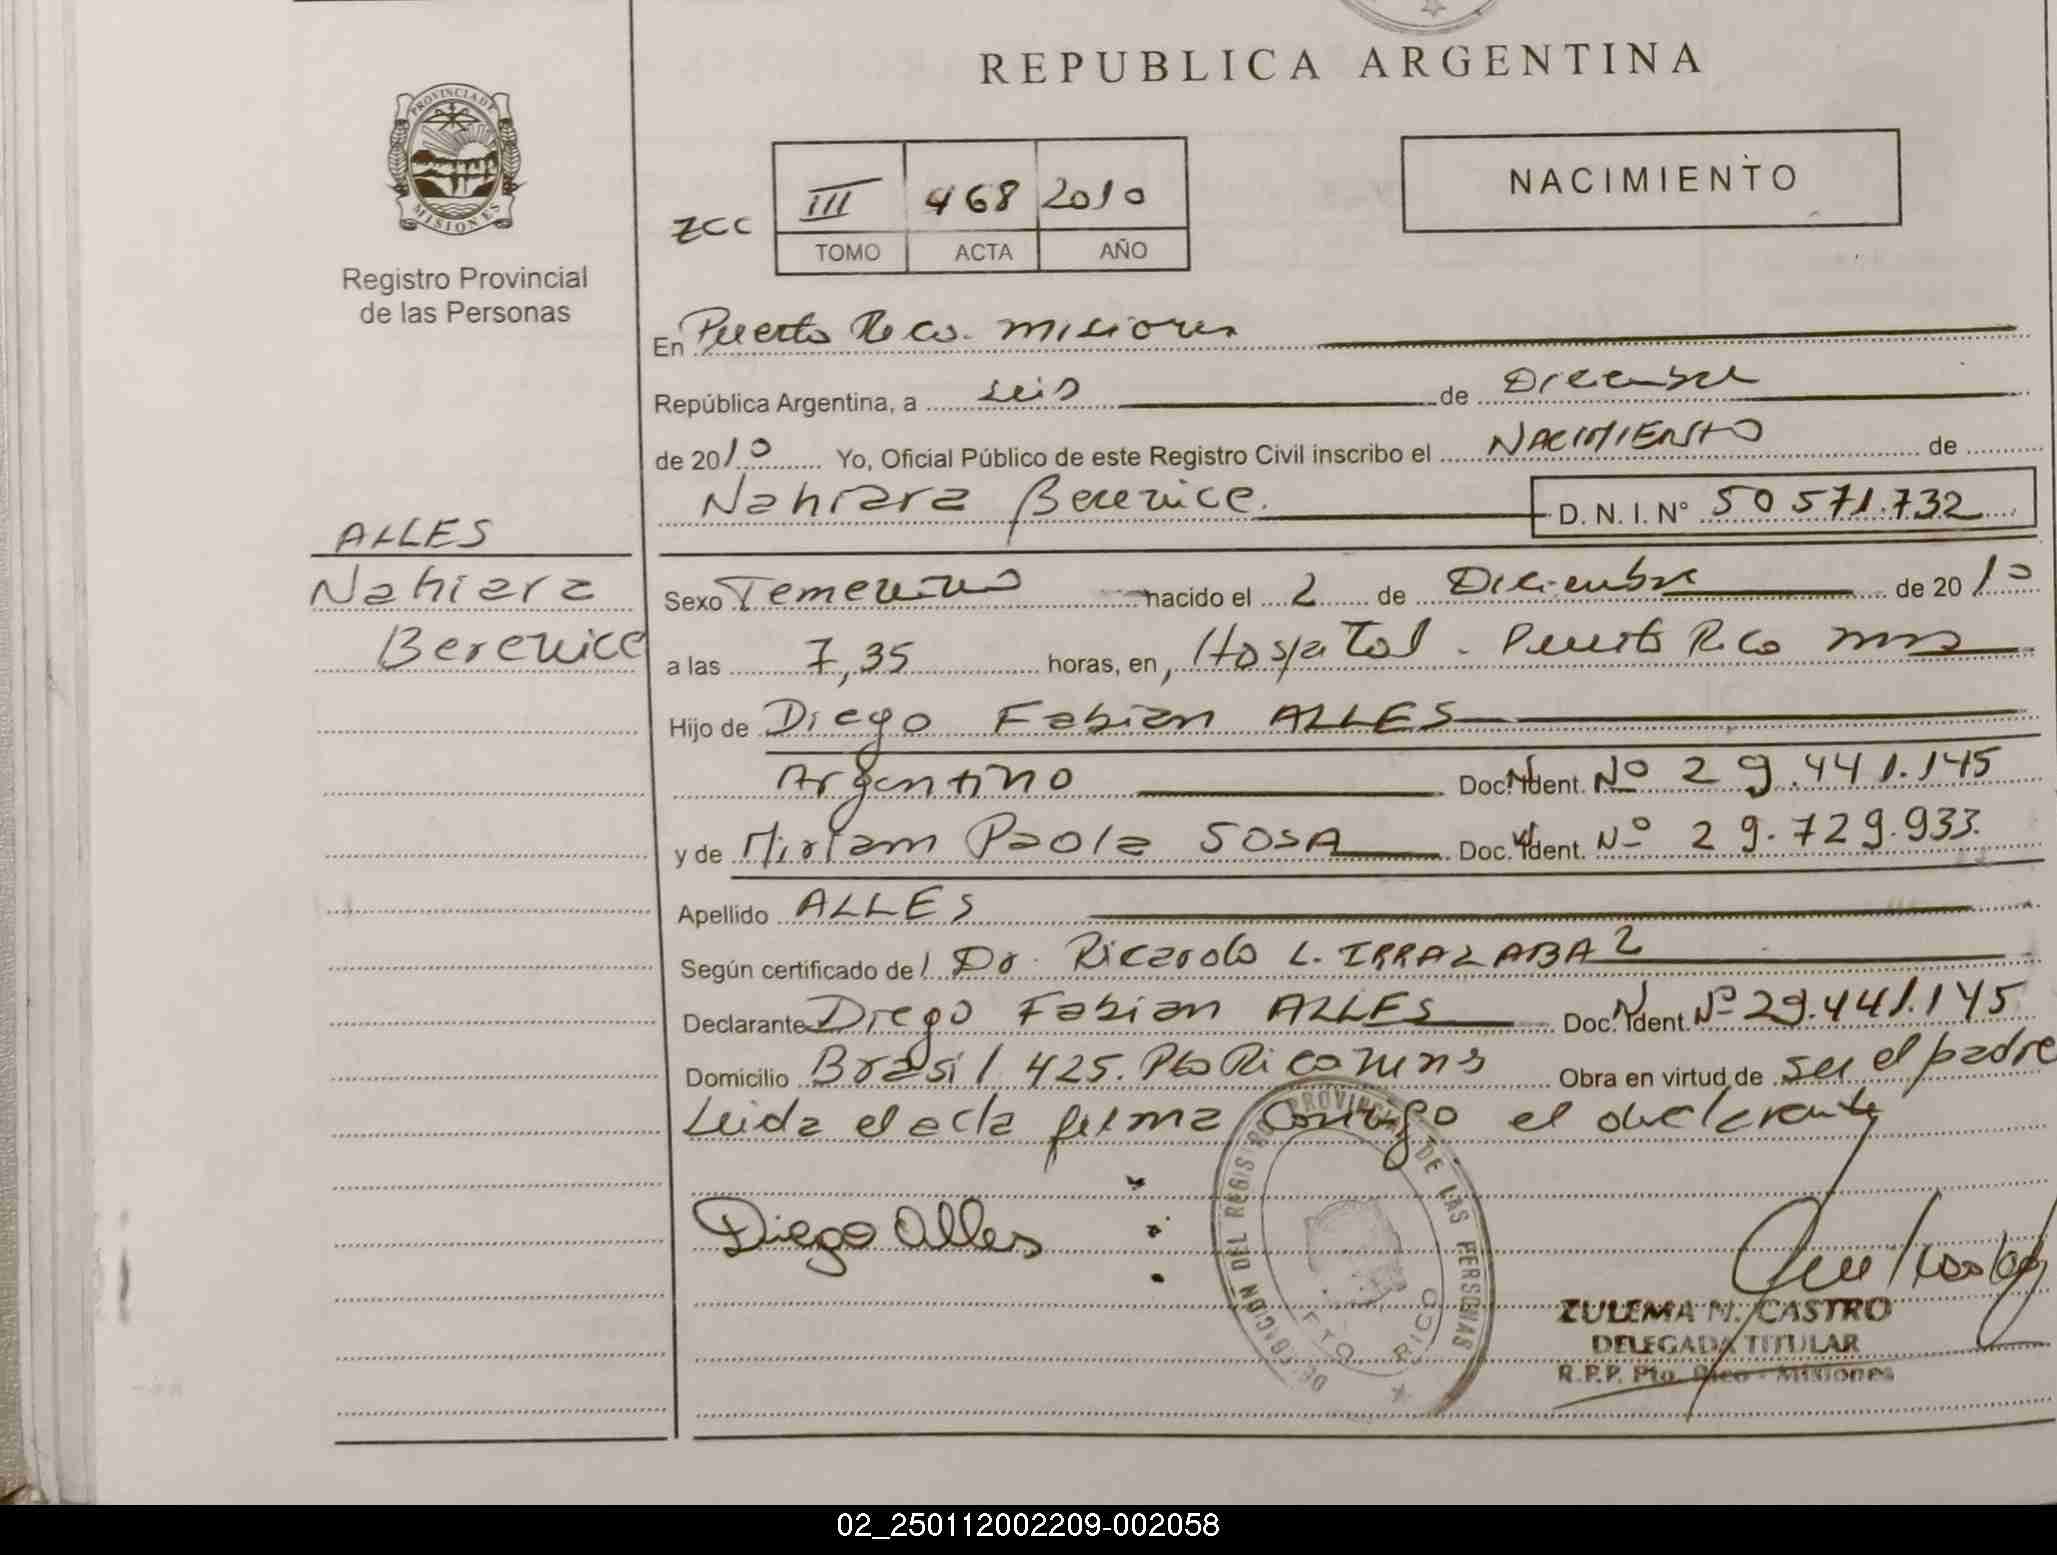 REPUBLICA ARGENTINA
PROVINCIA DE
MISIONES
Registro Provincial
de las Personas
NACIMIENTO
zcc III 468 2010
TOMO ACTA AÑO
En Puerto Rico. Misiones
República Argentina, a seis de Diciembre
de 2010 Yo, Oficial Público de este Registro Civil inscribo el NACIMIENTO de
Nahiara Berenice. D. N. I. Nº 50 571.732
ALLES
Nahiara
Berenice
Sexo Femenino nacido el 2 de Diciembre de 2010
a las 7,35 horas, en Hospital - Puerto Rico Mns
Hijo de Diego Fabian ALLES
Argentino Doc. Ident. Nº 29.441.145
y de Miriam Paola SOSA Doc. Ident. Nº 29.729.933.
Apellido ALLES
Según certificado del Dr. Ricardo L. IRRAZABAZ
Declarante Diego Fabian ALLES Doc. Ident. Nº 29.441.145
Domicilio Brasil 425. Pto Rico Mns Obra en virtud de ser el padre
Leida el acta firma conmigo el declarante
Diego Alles
DELEGACION DEL REGISTRO PROVINCIAL DE LAS PERSONAS
PTO RICO
ZULEMA N. CASTRO
DELEGADA TITULAR
R.P.P. Pto. Rico - Misiones
02_250112002209-002058